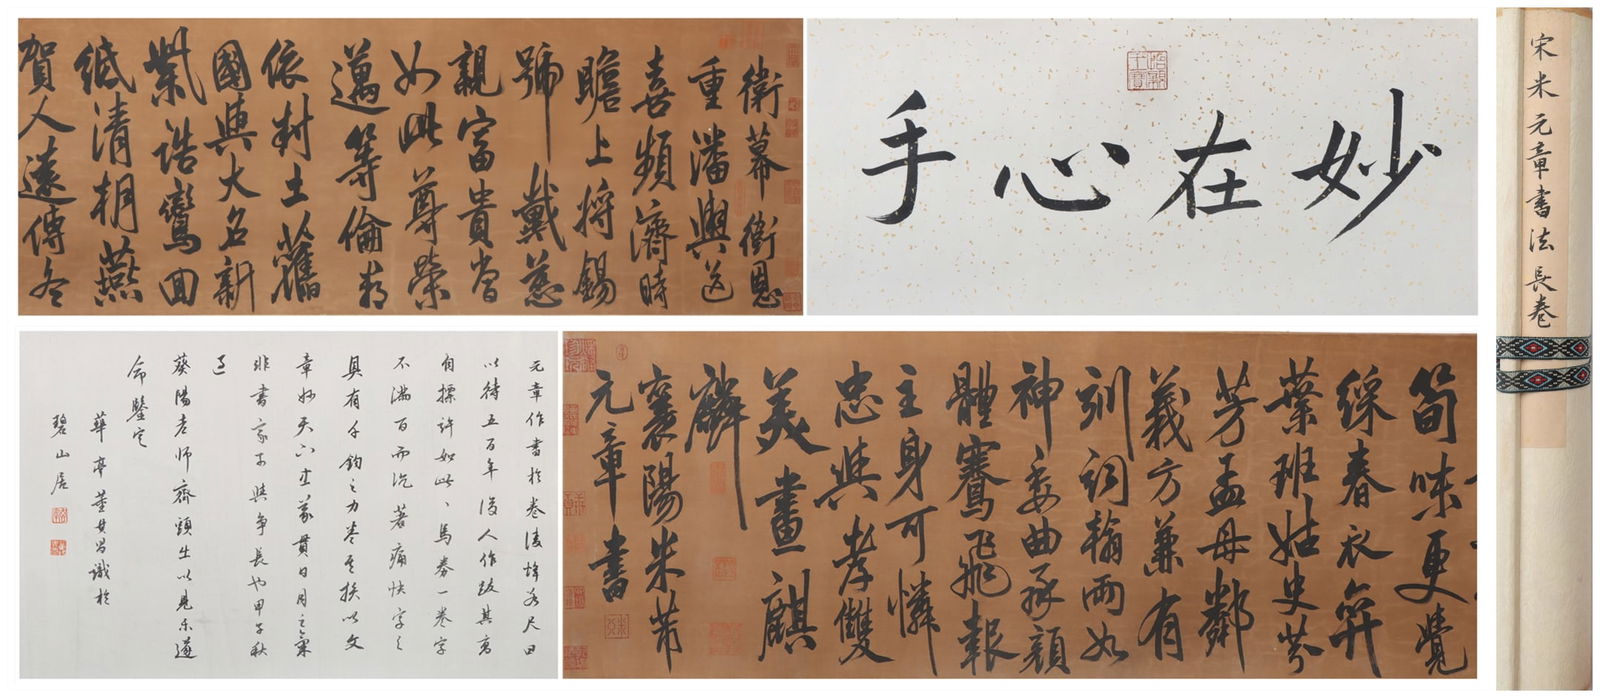 宋米元章書法長卷
妙在心手
衛幕銜恩
重潘輿送
喜頻濟時
瞻上將錫
號戴慈
親富貴當
如此尊榮
邁等倫郡
依封土舊
國與大名新
紫誥鸞回
紙清朝燕
賀人遠傳冬
筍味更覺
綵春衣弈
葉班姑史芬
芳孟母鄰
義方兼有
訓詞翰兩如
神委曲承顏
體騫飛報
主身可憐
忠與孝雙
美畫麒
麟
襄陽米芾
元章書
元章作書於卷後嘗為尺田
以待五百年後人作跋其高
自標許如此司馬券一卷字
不滿百而沉著痛快字字
具有千鈞之力卷長挨以文
章妙天下忠義貫日月之氣
非書家可與爭長也甲子秋
葵陽老師齋頭出以見示遂
命鑒定
華亭董其昌識於
碧山居